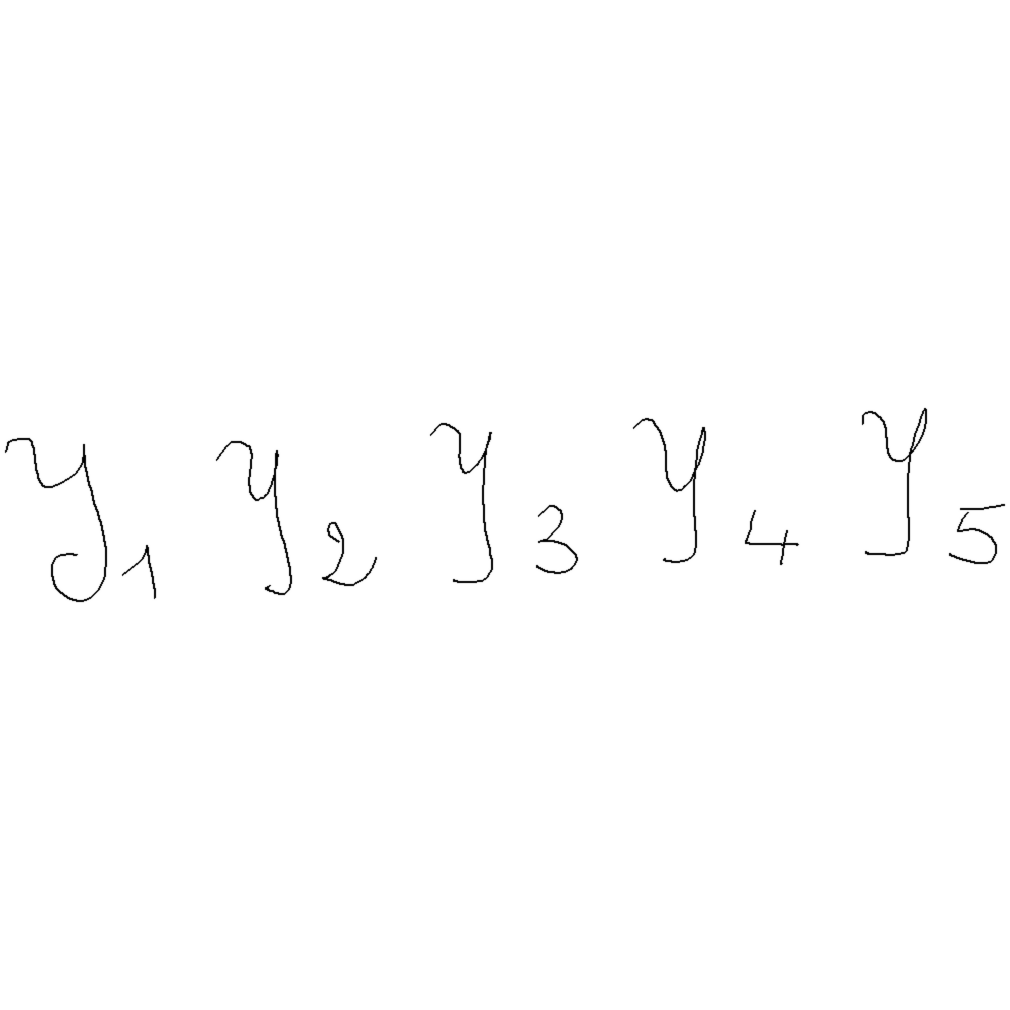 y₁ y₂ y₃ y₄ y₅